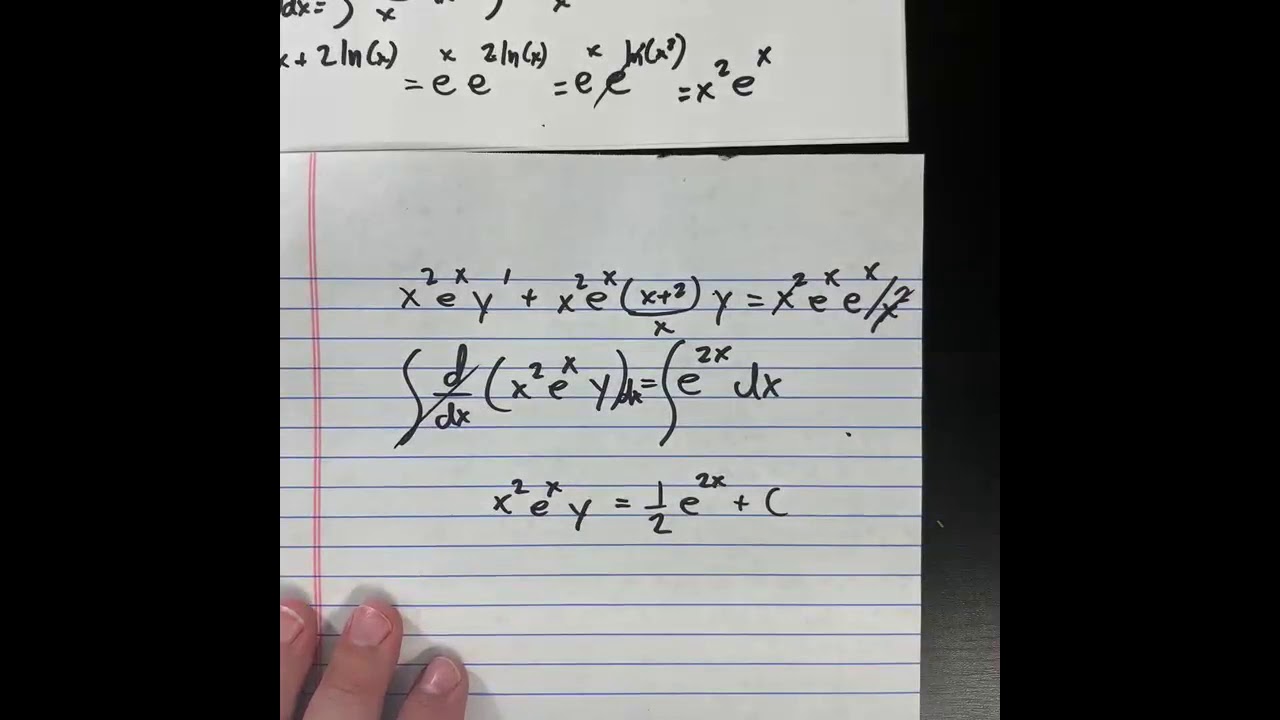 dx = ∫ x x
x + 2 ln(x) = e^x e^{2 ln(x)} = e^x e^{ln(x²)} = x² e^x
x² e^x y' + x² e^x ((x+2)/x) y = x² e^x e^x / x²
∫ d/dx (x² e^x y) dx = ∫ e^{2x} dx
x² e^x y = 1/2 e^{2x} + C